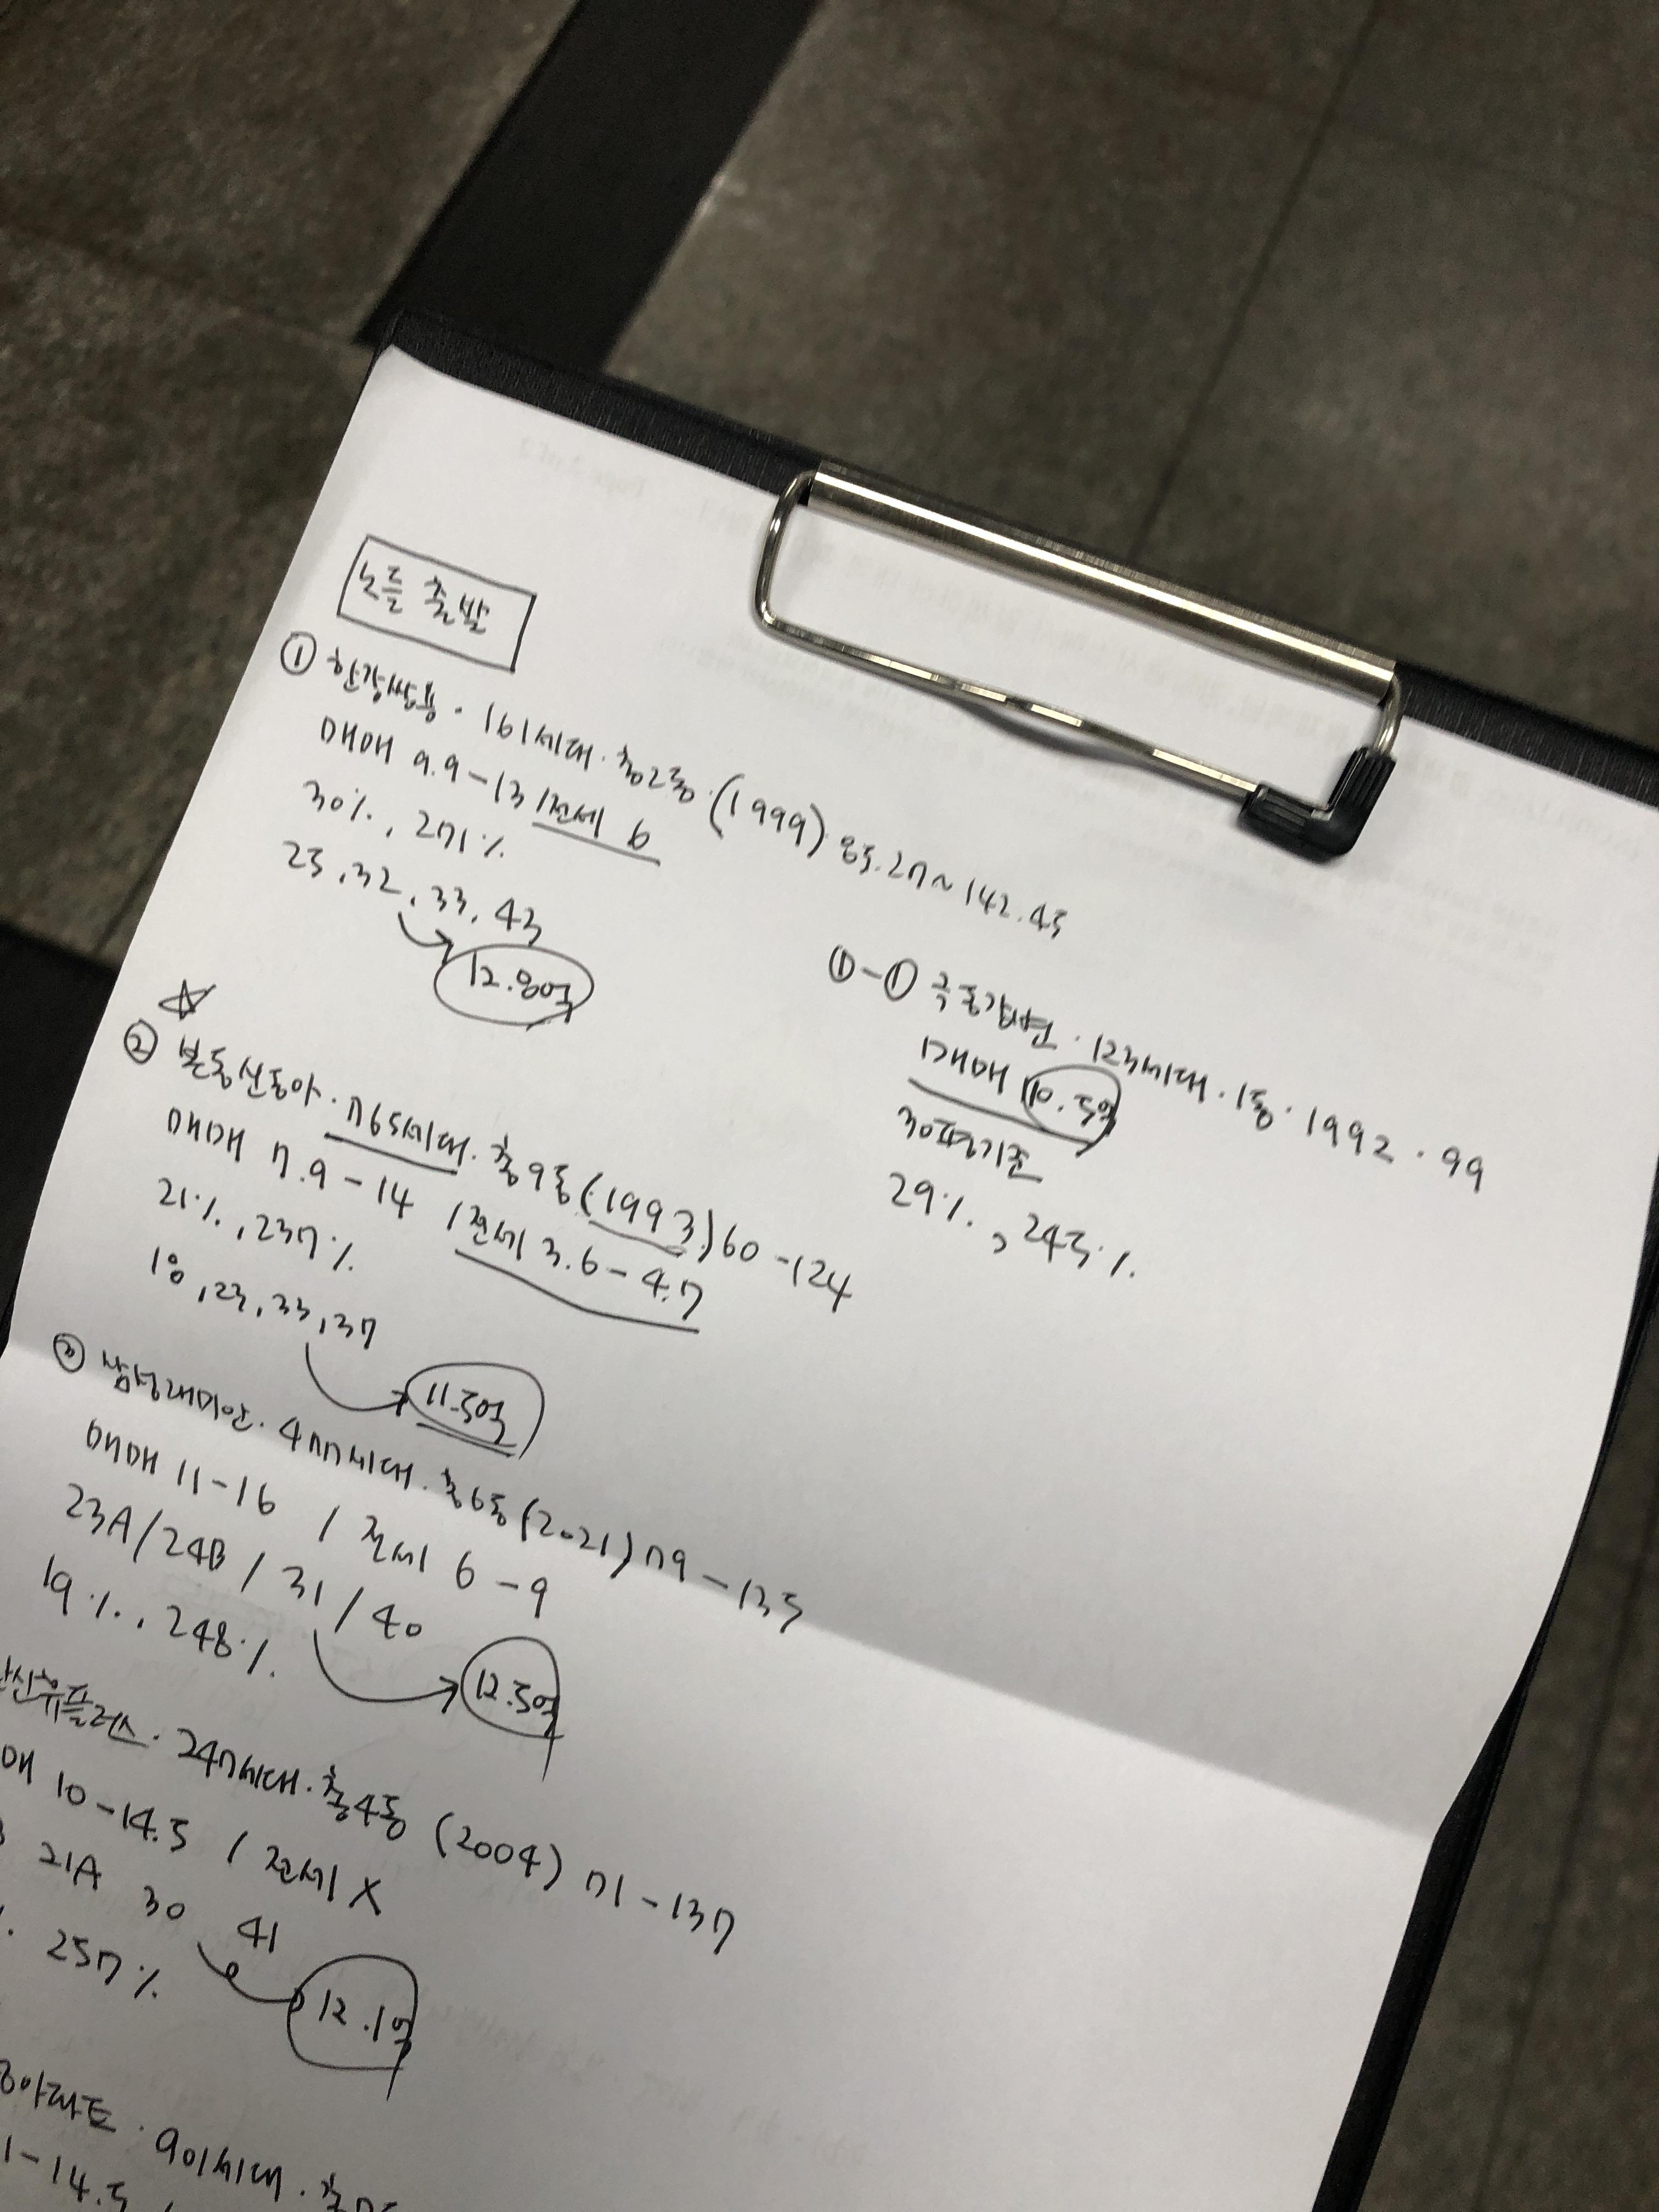 노들 출발
① 한강쌍용 · 161세대 · 총2동 · (1999) 85.27~142.45
매매 9.9-13 / 전세 6
30%, 271%
25, 32, 33, 43
12.8억
①-① 극동강변 · 123세대 · 1동 · 1992 · 99
매매 10.5억
30평기준
29%, 245%
☆
② 본동신동아 · 765세대 · 총9동 (1993) 60-124
매매 7.9-14 / 전세 3.6-4.7
21%, 237%
18, 23, 33, 37
11.5억
삼성래미안 · 477세대 · 총6동 (2021) 79-135
매매 11-16 / 전세 6-9
23A/24B/31/40
19%, 248%
12.5억
유플러스 · 247세대 · 총4동 (2004) 71-137
매 10-14.5 / 전세 X
21A 30 41
257%
12.1억
아파트 · 901세대 · 총
1-14.5